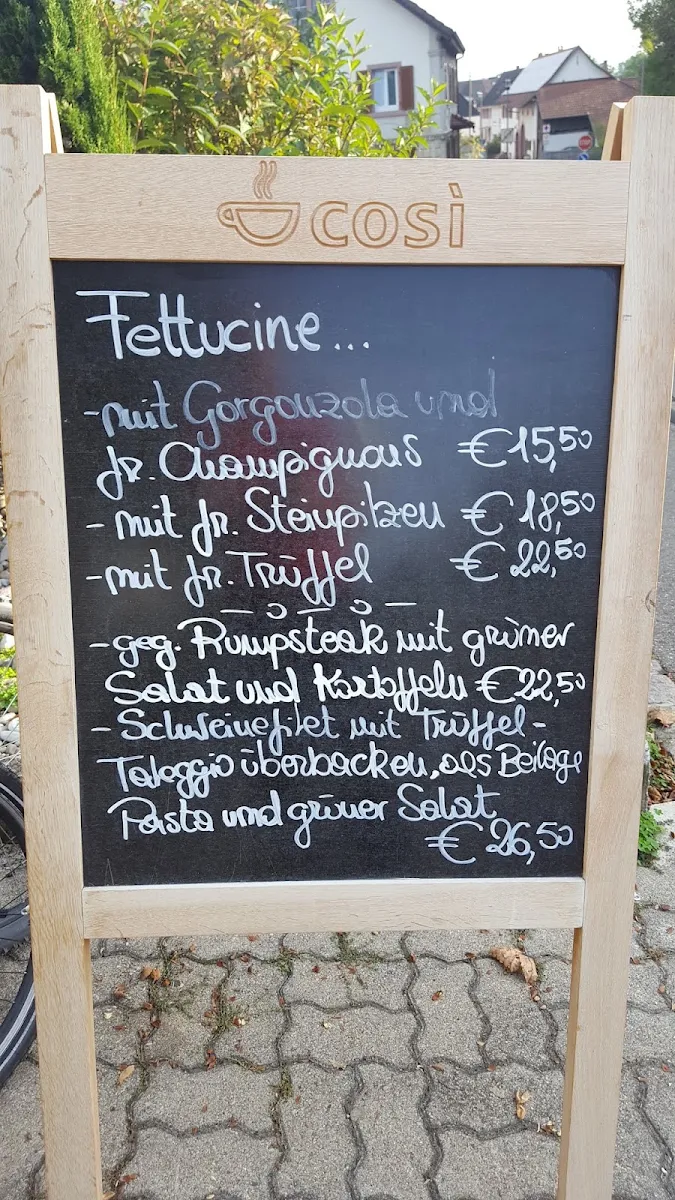 così
Fettucine...
- mit Gorgonzola und
fr. Champignons € 15,50
- mit fr. Steinpilzen € 18,50
- mit fr. Trüffel € 22,50
- geg. Rumpsteak mit grüner
Salat und Kartoffeln € 22,50
- Schweinefilet mit Trüffel-
Taleggio überbacken, als Beilage
Pasta und grüner Salat
€ 26,50